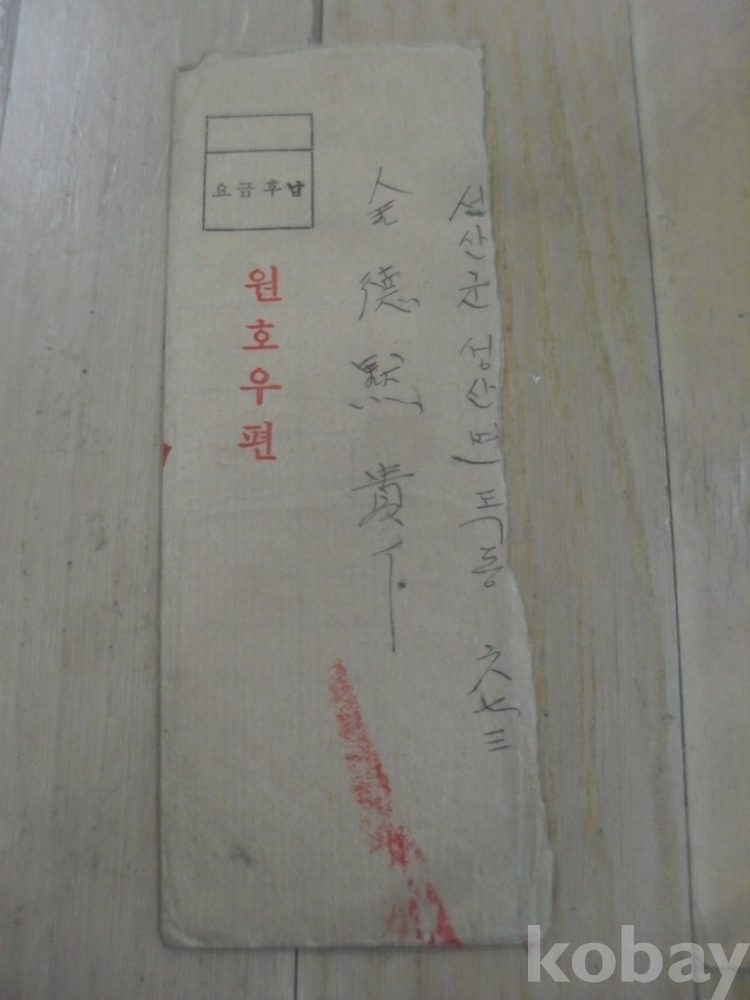 선산군 선산면 독동 六七三
金德默 貴下
요금후납
원호우편
kobay